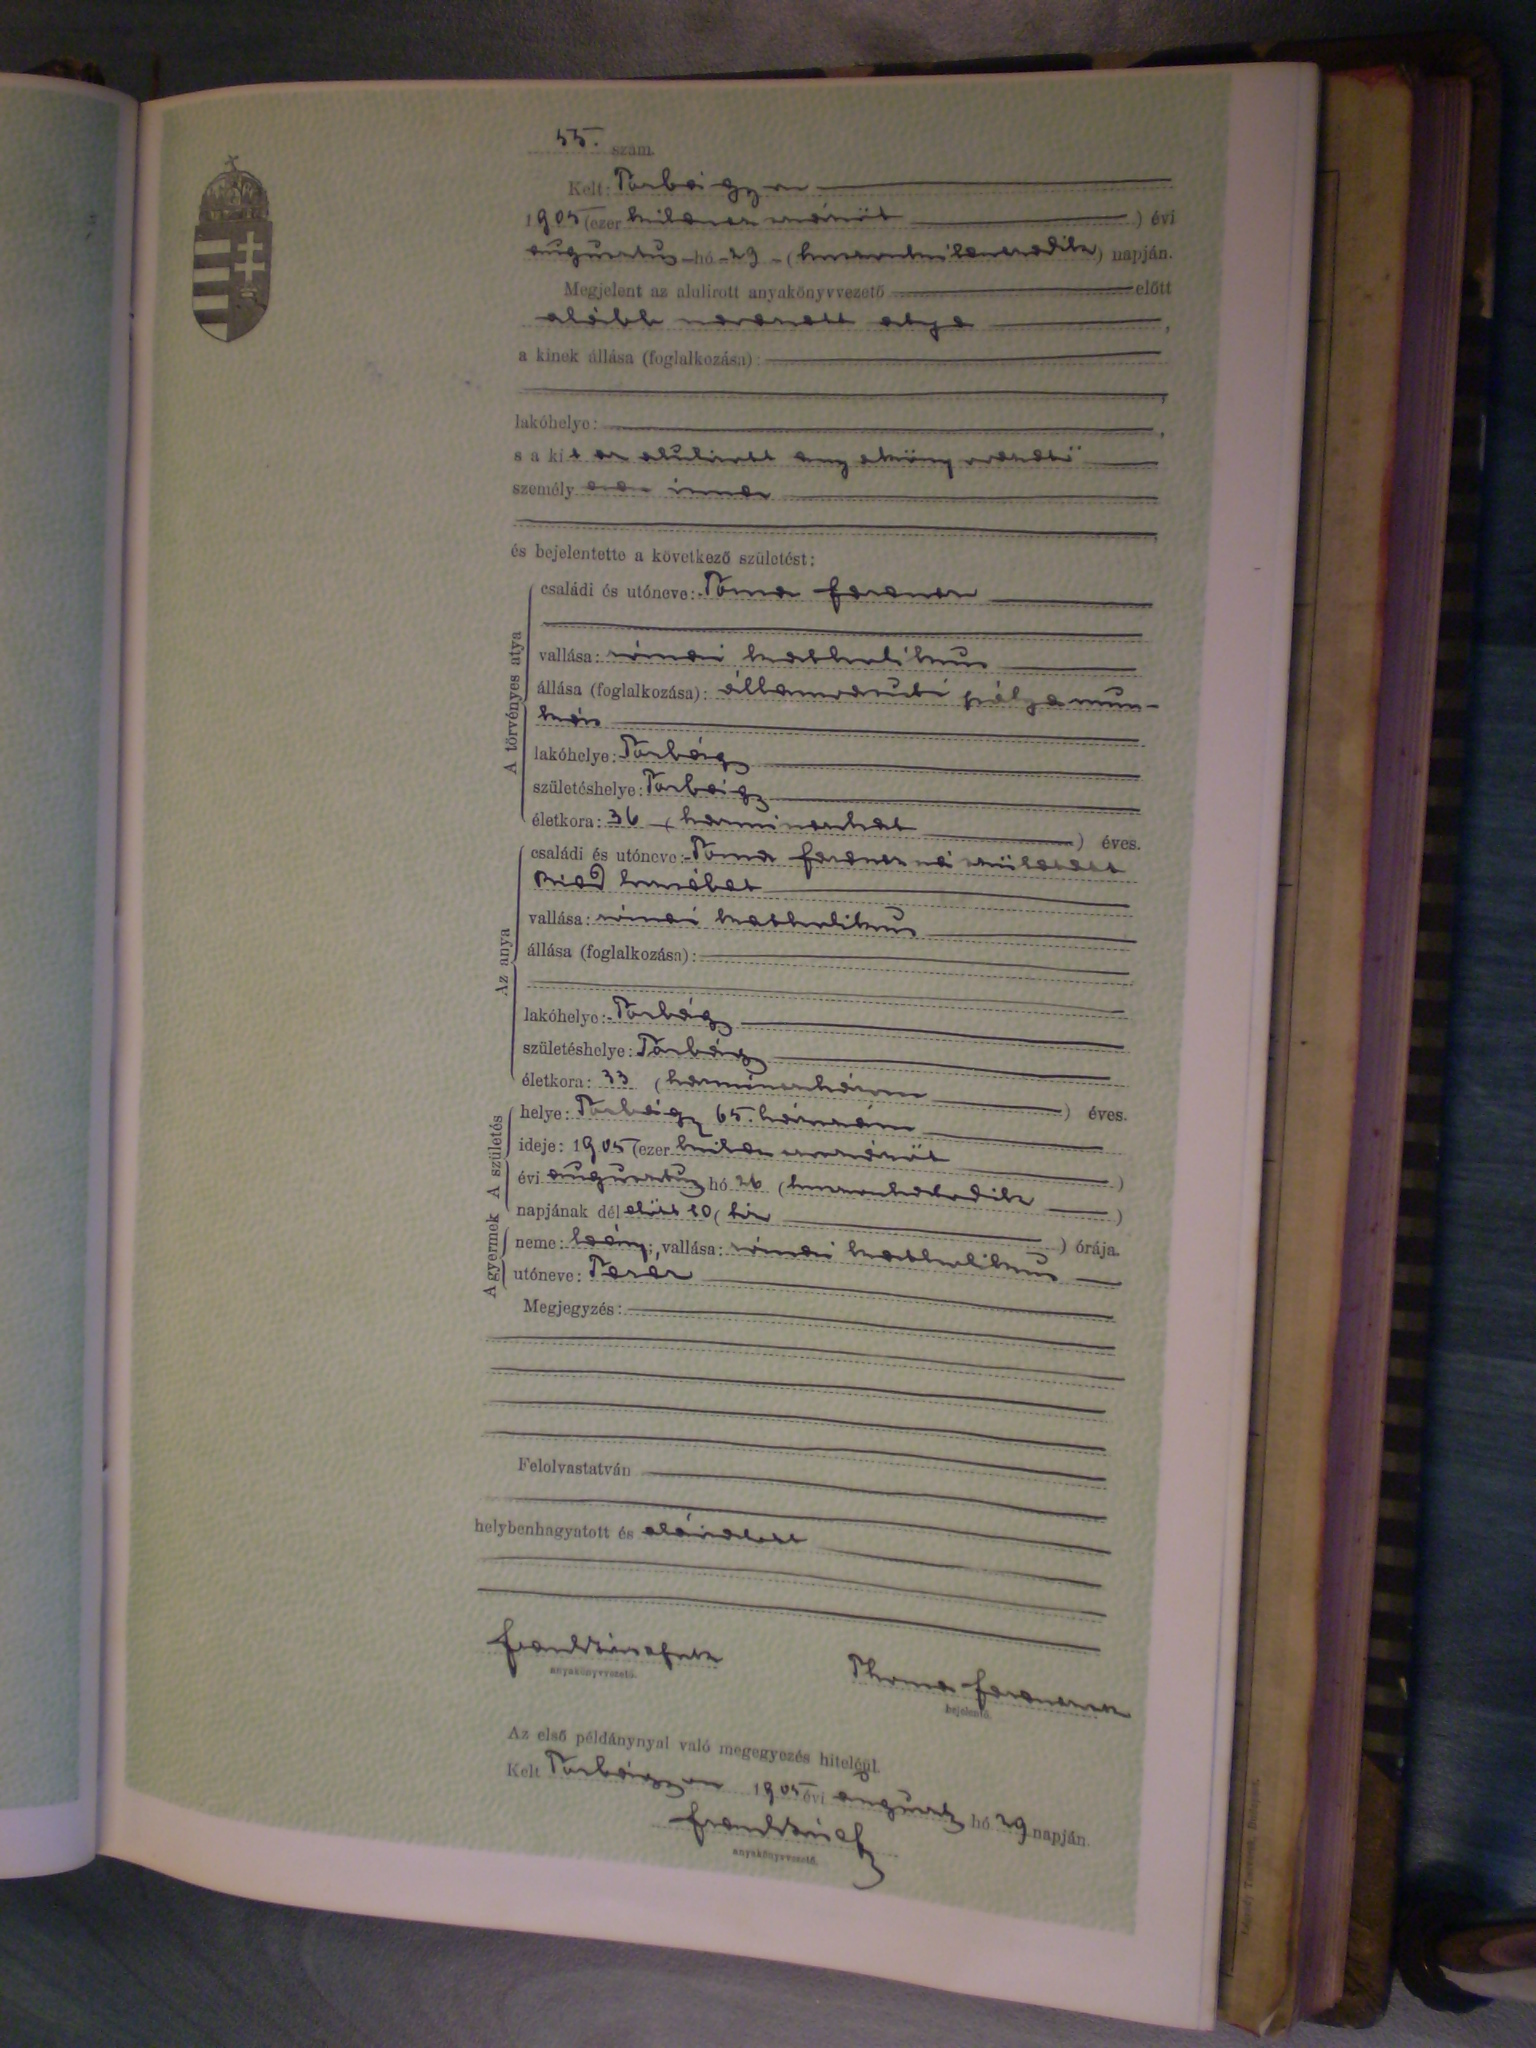 55. szám.
Kelt: Torbágyon
1905 (ezer kilencszázöt) évi
augusztus hó 29 (huszonkilencedik) napján.
Megjelent az alulirott anyakönyvvezető előtt
alább nevezett atya,
a kinek állása (foglalkozása):
lakóhelye:
s a kit az alulirott anyakönyvvezető
személyesen ismer
és bejelentette a következő születést:
A törvényes atya
családi és utóneve: Toma Ferencz
vallása: római katholikus
állása (foglalkozása): államvasuti pályamun-
kás
lakóhelye: Torbágy
születéshelye: Torbágy
életkora: 36 (harminczhat) éves.
Az anya
családi és utóneve: Toma Ferenczné született
Erzsébet
vallása: római katholikus
állása (foglalkozása):
lakóhelye: Torbágy
születéshelye: Torbágy
életkora: 33 (harminczhárom) éves.
A születés
helye: Torbágy 65. házszám
ideje: 1905 (ezer kilenczszázöt)
évi augusztus hó 26 (huszonhatodik)
napjának dél előtt 10 (tíz) órája.
A gyermek
neme: leány; vallása: római katholikus
utóneve: Teréz
Megjegyzés:
Felolvastatván
helybenhagyatott és aláiratott
anyakönyvvezető.
Thoma Ferencz
bejelentő.
Az első példánynyal való megegyezés hiteléül.
Kelt Torbágyon 1905 évi auguszt hó 29 napján.
anyakönyvvezető.